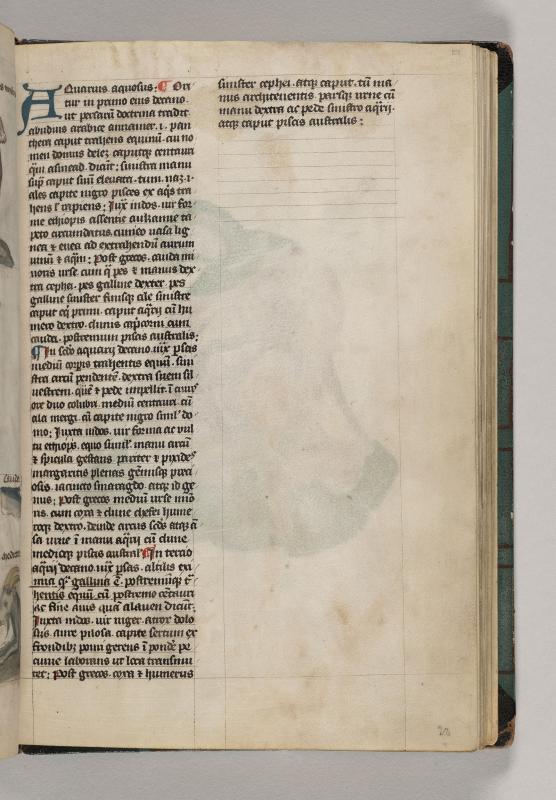 AQuarius aquosus: Ori
tur in primo eius decano
ut persarum doctrina tradit
abudius arabice annamer .i. pan
thera caput trahens equinum. cui no
men domus delez caputque centauri
quem asinead dicunt: sinistra manu
super caput suum eleuata. tum naz .i.
ales capite nigro pisces ex aquis tra
hens rapiens: Iuxta indos. uir for
me ethiopis assentie aukanne ta
peto circumdatus cuneo uasa lig
nea et enea ad extrahendum aurum
uinum et aquam: Post grecos. cauda mi
noris urse cum qua pes et manus dex
tra cephei. pes galline dexter. pes
galline sinister finisque ale sinistre
caput equi primi. caput aquarii cum hu
mero dextro. clunis capricorni cum
cauda. postremum piscis australis:
In secundo aquarii decano. iuxta persas
medium corporis trahentis equum. sini
stra arcum pendentem. dextra suem sil
uestrem. quem et pede impellit. in cuius
ore duo colubri. medium centauri. cum
ala mergi. cum capite nigro simul do
mo: Iuxta indos. uir forma ac uul
tu ethiops. equo similis. manu arcum
et spicula gestans pariter et pixides
margaritis plenas gemmisque preci
osis. iacincto smaragdo. atque id ge
nus: Post grecos medium urse mino
ris. cum coxa et clune chefei hume
roque dextro. deinde arcus secundus atque a
sa urne in manu aquarii cum clune
medioque piscis australis In tercio
aquarii decano. iuxta persas. altilis exi
mia que gallina est. postremumque tra
hentis equum. cum postremo centauri
ac fine auis quam alauen dicunt:
Iuxta indos. uir niger. atrox dolo
sus. aure pilosa. capite sertum ex
frondibus pomi gerens in pondere pe
cunie laborans ut loca transmu
tet: Post grecos. coxa et humerus
sinister cephei. atque caput. cum ma
nus architenentis. parsque urne cum
manu dextra ac pede sinistro aquarii.
atque caput piscis australis:
28